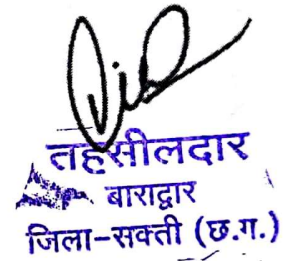 तहसीलदार
बाराद्वार
जिला-सक्ती (छ.ग.)